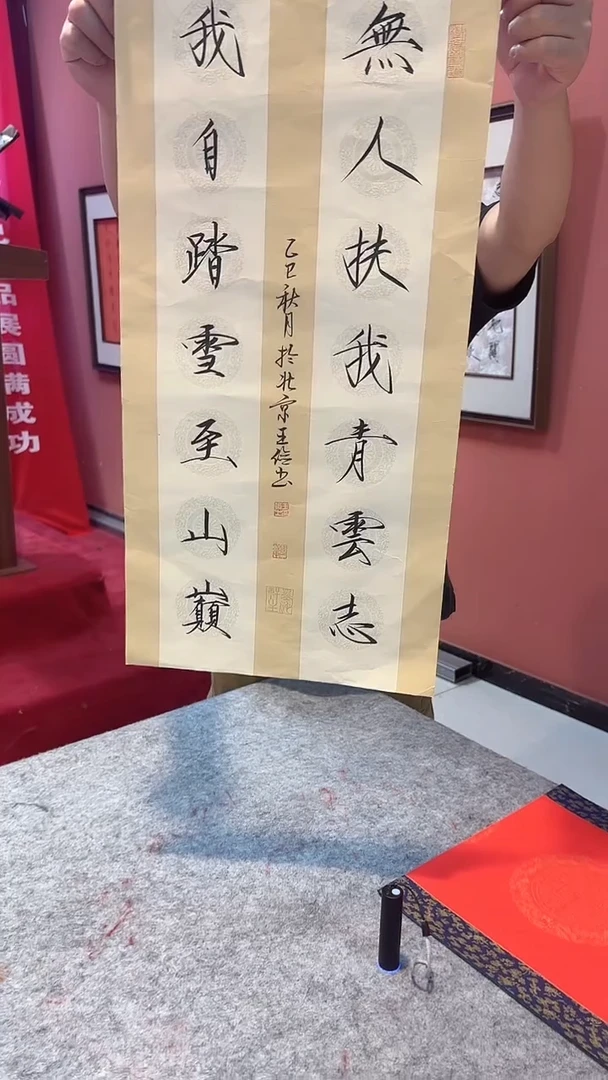 無人扶我青雲志
我自踏雪至山巔
乙巳秋月於北京王
品展圆满成功